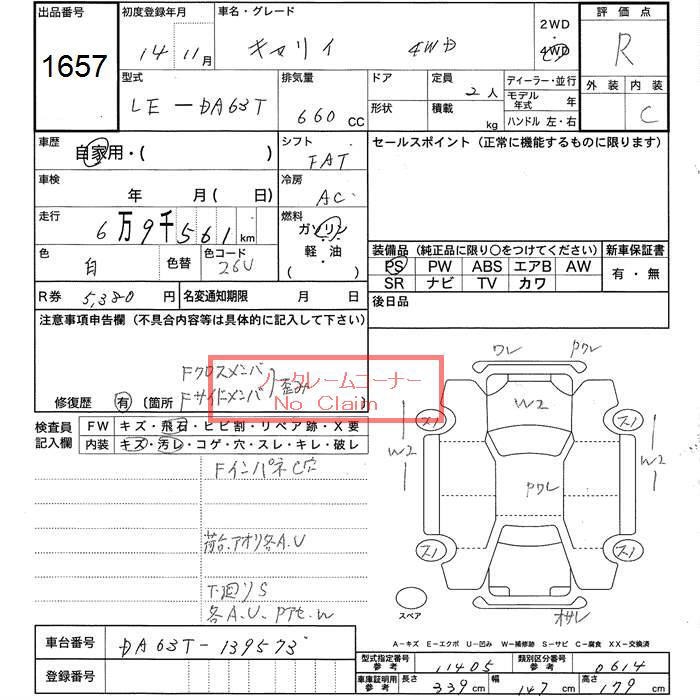 出品番号 1657
初度登録年月 14 11月
車名・グレード キャリイ 4WD
2WD・4WD
評価点 R
外装 内装 C
型式 LE-DA63T
排気量 660 CC
ドア
形状
定員 2人
積載 kg
ディーラー・並行
モデル年式 年
ハンドル 左・右
車歴 自家用・( )
シフト FAT
セールスポイント(正常に機能するものに限ります)
車検 年 月(日)
冷房 AC
走行 6万9千561km
燃料 ガソリン・軽油・( )
色 白 色替 色コード 26U
装備品(純正品に限り〇をつけてください)
新車保証書
PS PW ABS エアB AW
有・無
SR ナビ TV カワ
R券 5,380円
名変通知期限 月 日
後日品
注意事項申告欄(不具合内容等は具体的に記入して下さい)
Fクロスメンバ
Fサイドメンバ 歪み
修復歴 有 〔箇所
ノークレームコーナー
No Claim
検査員記入欄
FW キズ・飛石・ヒビ割・リペア跡・X要
内装 キズ・汚レ・コゲ・穴・スレ・キレ・破レ
FインパネC穴
荷台、アオリ各A.U
下廻りS
各A.U.
ワレ
W2
W2
W2
スペア
A-キズ E-エクボ U-凹み W-補修跡 S-サビ C-腐食 XX-交換済
車台番号 DA63T-139573
登録番号
型式指定番号 参考 11405
類別区分番号 参考 0614
車庫証明用 参考 長さ 339cm 幅 147cm 高さ 179cm